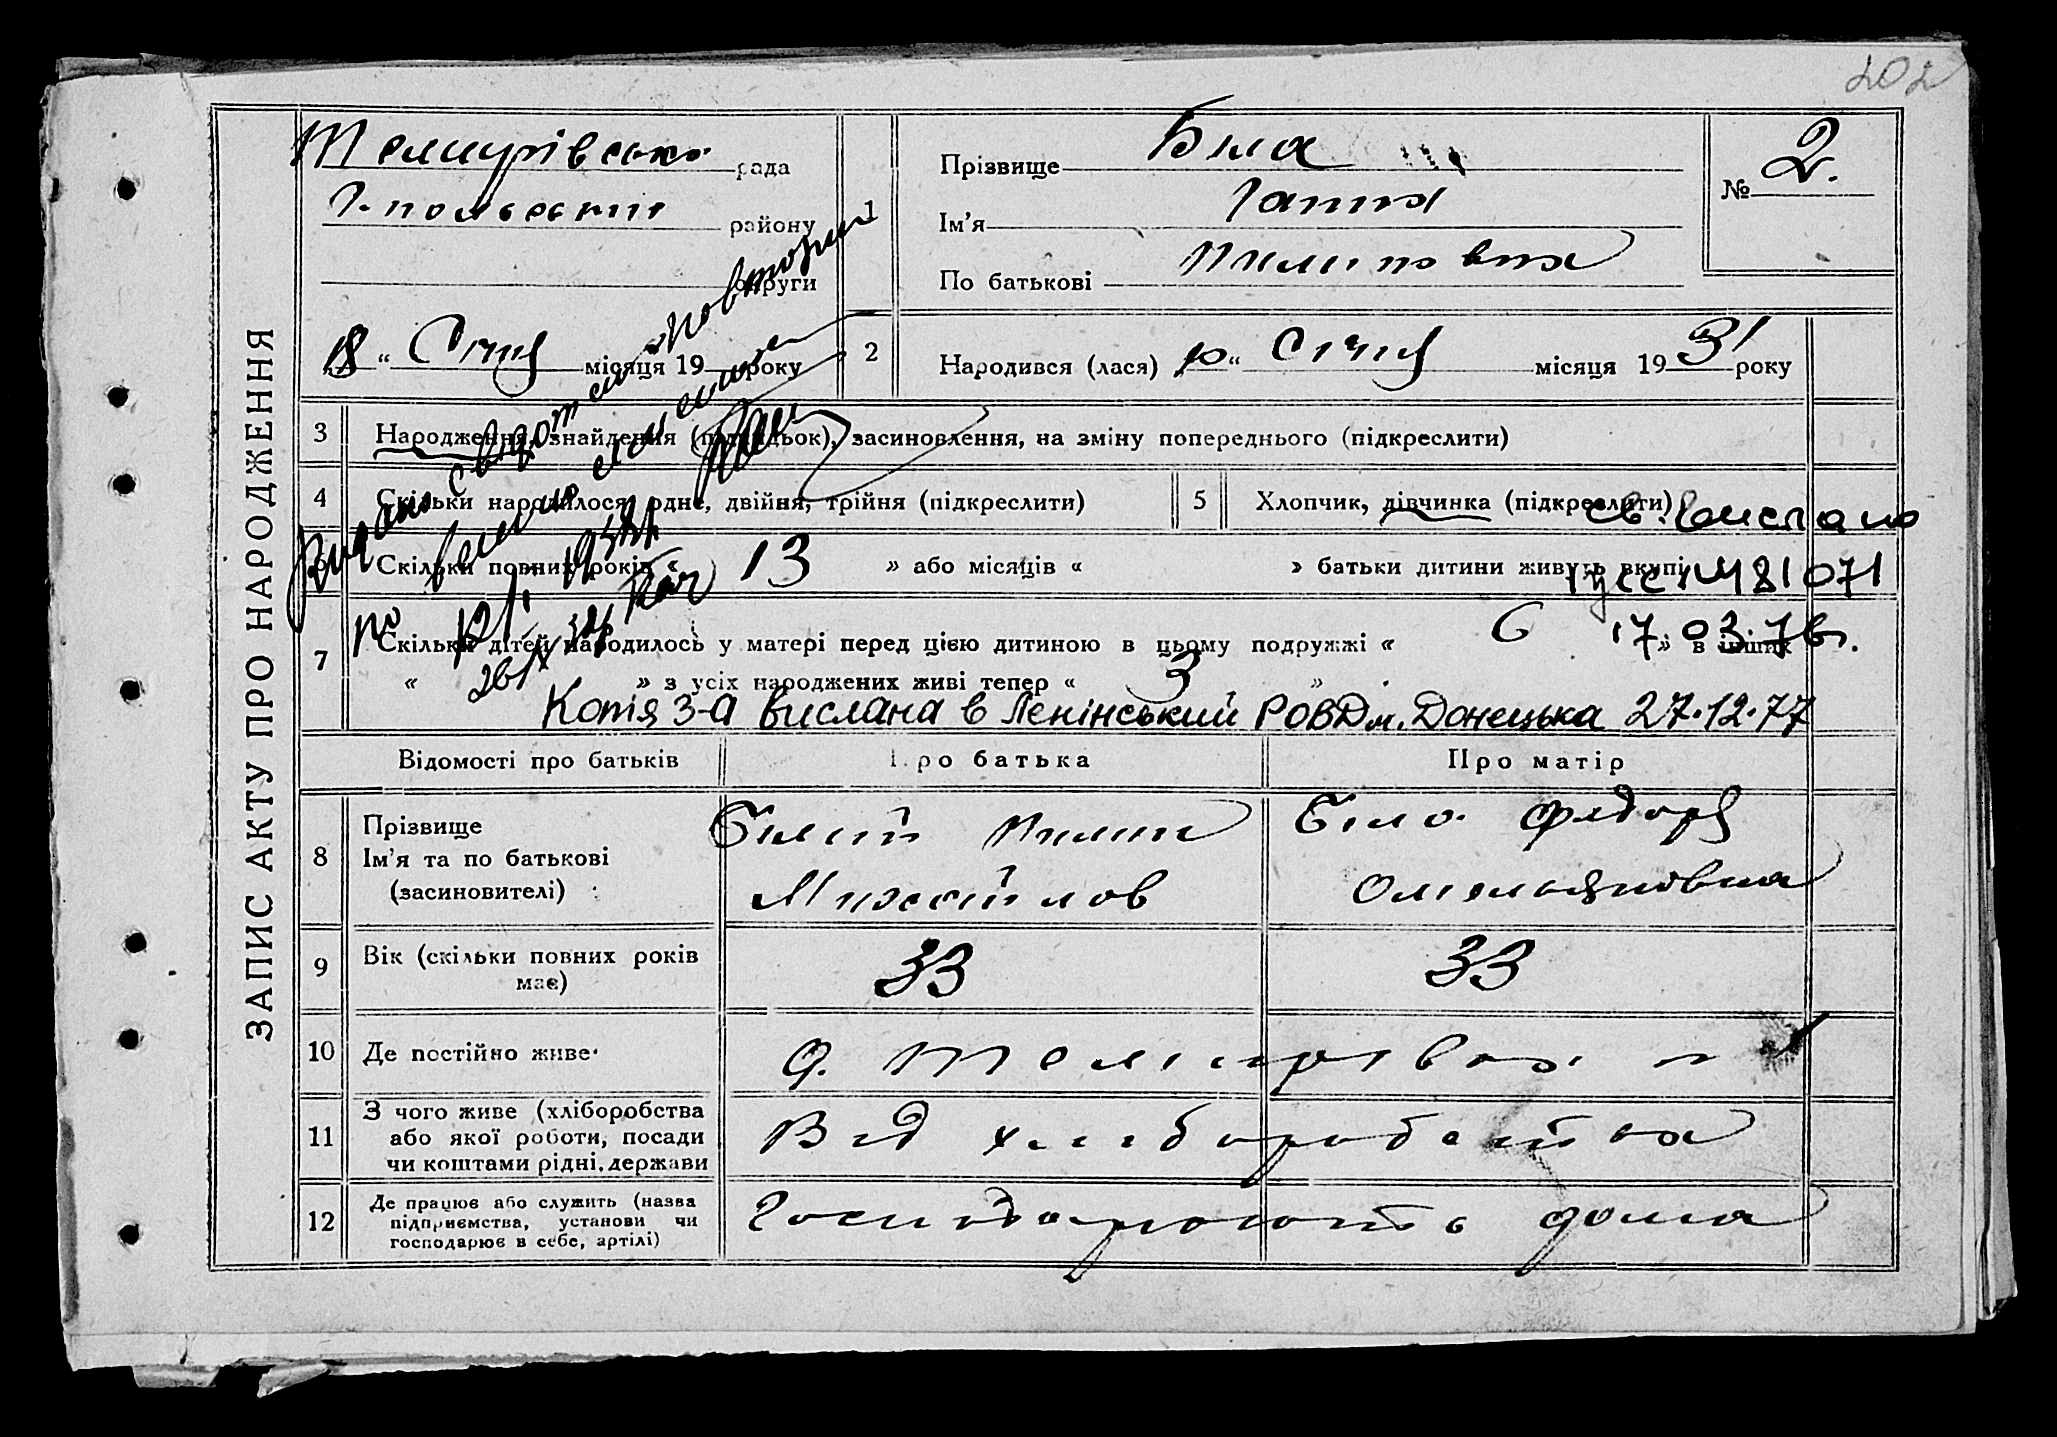 202
ЗАПИС АКТУ ПРО НАРОДЖЕННЯ
Темирівсько рада
Г-польський району
округи
18 " Січня місяця 19 року
1
Прізвище Біла
Ім'я Ганна
По батькові Пилиповна
№ 2.
2
Народився (лася) 10 " Січня місяця 1931 року
3 Народження, знайдення (підкидьок), засиновлення, на зміну попереднього (підкреслити)
4 Скільки народилося: одне, двійня, трійня (підкреслити)
5 Хлопчик, дівчинка (підкреслити)
св. вислано
6 Скільки повних років « 13 » або місяців « » батьки дитини живуть вкупі
481071
17.03.76г.
7 Скільки дітей народилось у матері перед цією дитиною в цьому подружжі « 6 » в інших
« » з усіх народжених живі тепер « 3 »
Копія З-а вислана в Ленінський РОВД м. Донецька 27.12.77
Видано свідот повторни
по
Відомості про батьків
Про батька
Про матір
8 Прізвище
Ім'я та по батькові
(засиновителі)
Білий Пилип
Михайлов
Біла Федора
Омельяновна
9 Вік (скільки повних років має)
33
33
10 Де постійно живе
с. Темирівка
11 З чого живе (хліборобства
або якої роботи, посади
чи коштами рідні, держави
Від хліборобства
12 Де працює або служить (назва
підприємства, установи чи
господарює в себе, артілі)
Господарюють дома